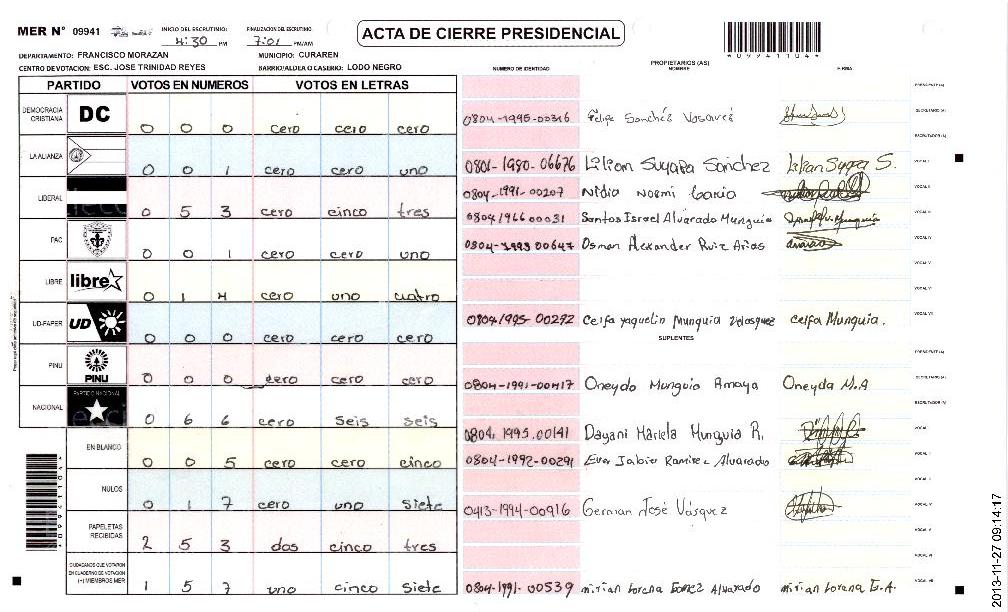 MER N° 09941 INICIO DEL ESCRUTINIO: 4:30 PM FINALIZACION DEL ESCRUTINIO: 7:01 PM/AM
ACTA DE CIERRE PRESIDENCIAL
DEPARTAMENTO: FRANCISCO MORAZAN MUNICIPIO: CURAREN
CENTRO DE VOTACION: ESC. JOSE TRINIDAD REYES BARRIO/ALDEA O CASERIO: LODO NEGRO
*09941104*
PARTIDO VOTOS EN NUMEROS VOTOS EN LETRAS
DEMOCRACIA CRISTIANA DC 0 0 0 cero cero cero
LA ALIANZA 0 0 1 cero cero uno
LIBERAL 0 5 3 cero cinco tres
PAC 0 0 1 cero cero uno
LIBRE libre 0 1 4 cero uno cuatro
UD-FAPER UD 0 0 0 cero cero cero
PINU PINU 0 0 0 cero cero cero
NACIONAL PARTIDO NACIONAL 0 6 6 cero seis seis
EN BLANCO 0 0 5 cero cero cinco
NULOS 0 1 7 cero uno siete
PAPELETAS RECIBIDAS 2 5 3 dos cinco tres
CIUDADANOS QUE VOTARON EN CUADERNO DE VOTACION (+) MIEMBROS MER 1 5 7 uno cinco siete
*09941104*
PROPIETARIOS (AS)
NUMERO DE IDENTIDAD NOMBRE FIRMA
PRESIDENTE (A)
0804-1995-00316 Felipe Sanchés SECRETARIO (A)
ESCRUTADOR (A)
0801-1980-06676 Lilian Suyapa Sanchez Lilian Suyapa S. VOCAL I
0804-1991-00207 Nidia Noemi Garcia VOCAL II
0804 1966 00031 Santos Israel Alvarado Munguia VOCAL III
0804-1993 00647 Osman Alexander Ruiz Arias VOCAL IV
VOCAL V
VOCAL VI
0804 1995-00292 Celfa Yaquelin Munguia Velasquez Celfa Munguia. VOCAL VII
SUPLENTES
PRESIDENTE (A)
0804-1991-00417 Oneyda Munguia Amaya Oneyda M.A SECRETARIO (A)
ESCRUTADOR (A)
0804, 1995.00141 Dayani Mariela Munguia R. VOCAL I
0804-1992-00291 Ever Jabier Ramirez Alvarado VOCAL II
0413-1994-00916 German José Vásquez VOCAL IV
VOCAL V
VOCAL VI
0804-1991-00539 Mirian Lorena Gomez Alvarado Mirian Lorena G.A. VOCAL VII
2013-11-27 09:14:17